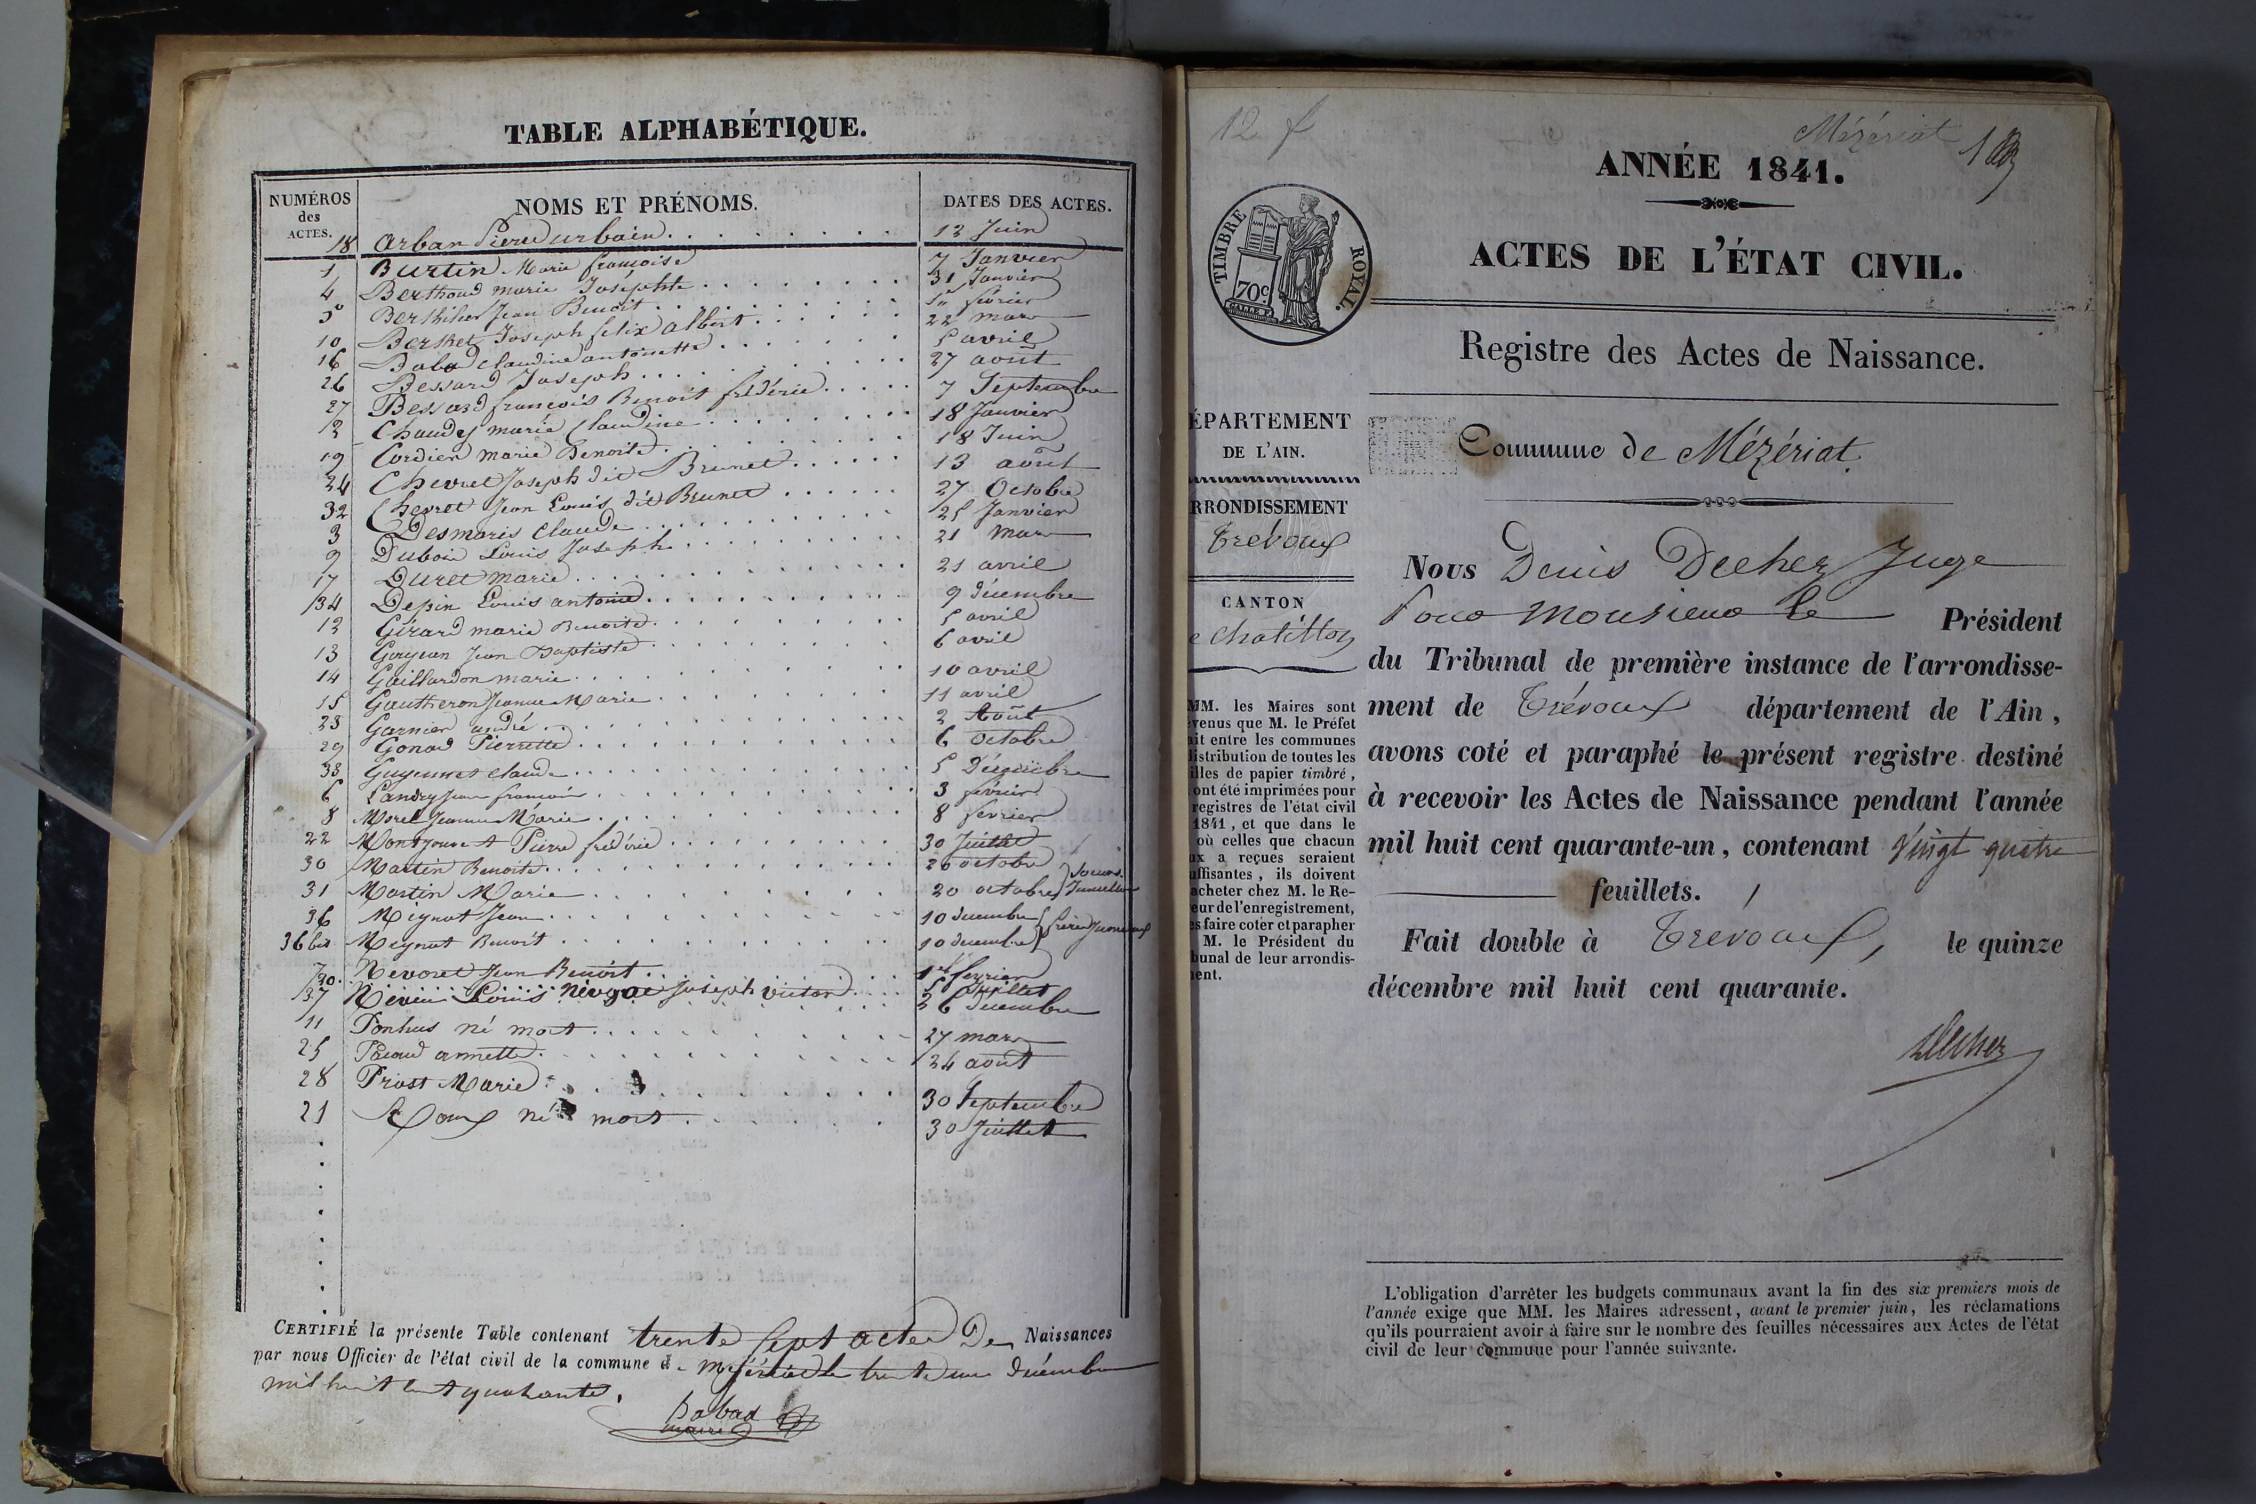 TABLE ALPHABÉTIQUE.
NUMÉROS des ACTES. NOMS ET PRÉNOMS. DATES DES ACTES.
18 Arban Pierre urbain 12 Juin
1 Burtin Marie françoise 7 Janvier
4 Berthoud marie Josephte 31 Janvier
5 Berthilier Jean Benoit 1er février
10 Berthet Joseph felix albert 22 mars
16 Babad claudine antoinette 5 avril
26 Bessard Joseph 27 août
27 Bessard françois Benoit frédéric 7 Septembre
2 Chaudy marie Claudine 18 Janvier
19 Cordier marie Benoite 18 Juin
24 Chevret Joseph dit Brunet 13 août
32 Chevret Jean Louis dit Brunet 27 Octobre
3 Desmaris Claude 25 Janvier
9 Dubois Louis Joseph 21 mars
17 Duret marie 21 avril
34 Depin Louis antoine 9 décembre
12 Girard marie Benoite 5 avril
13 Goyean Jean Baptiste 6 avril
14 Gaillardon marie 10 avril
15 Gautheron Jeanne Marie 11 avril
23 Garnier andré 2 Août
29 Gonod Pierrette 6 octobre
33 Guyennet claude 5 Décembre
6 Landry Jean françois 3 février
8 Morel Jeanne Marie 8 février
22 Montjouvent Pierre frédéric 30 Juillet
30 Martin Benoite 20 octobre } soeurs
31 Martin Marie 20 octobre } Jumelles
36 Meynat Jean 10 decembre } frères Jumeaux
36 bis Meynat Benoit 10 decembre
7 Nevoret Jean Benoit 1er fevrier
20. Névoret Joseph victor 5 Juillet
37 Neveu Louis 26 Decembre
11 Ponhus né mort 27 mars
25 Pacoud annette 24 août
28 Prost Marie 30 Septembre
21 Roux né mort 30 Juillet
CERTIFIÉ la présente Table contenant trente sept actes De Naissances
par nous Officier de l'état civil de la commune de Mézériat le trente un décembre
mil huit cent quarante.
Babad
maire
12 f
Mézériat
ANNÉE 1841.
ACTES DE L'ÉTAT CIVIL.
TIMBRE ROYAL.
70c
Registre des Actes de Naissance.
ÉPARTEMENT
DE L'AIN.
RRONDISSEMENT
Trévoux
CANTON
e Chatillon
MM. les Maires sont
venus que M. le Préfet
ait entre les communes
distribution de toutes les
illes de papier timbré,
ont été imprimées pour
registres de l'état civil
1841, et que dans le
où celles que chacun
ux a reçues seraient
uffisantes, ils doivent
acheter chez M. le Re-
eur de l'enregistrement,
es faire coter et parapher
M. le Président du
bunal de leur arrondis-
ent.
Commune de Mézériat.
Nous Denis Decher Juge
Pour Monsieur le Président
du Tribunal de première instance de l'arrondisse-
ment de Trévoux département de l'Ain,
avons coté et paraphé le présent registre destiné
à recevoir les Actes de Naissance pendant l'année
mil huit cent quarante-un, contenant Vingt quatre
feuillets.
Fait double à Trévoux, le quinze
décembre mil huit cent quarante.
Decher
L'obligation d'arrêter les budgets communaux avant la fin des six premiers mois de
l'année exige que MM. les Maires adressent, avant le premier juin, les réclamations
qu'ils pourraient avoir à faire sur le nombre des feuilles nécessaires aux Actes de l'état
civil de leur commune pour l'année suivante.